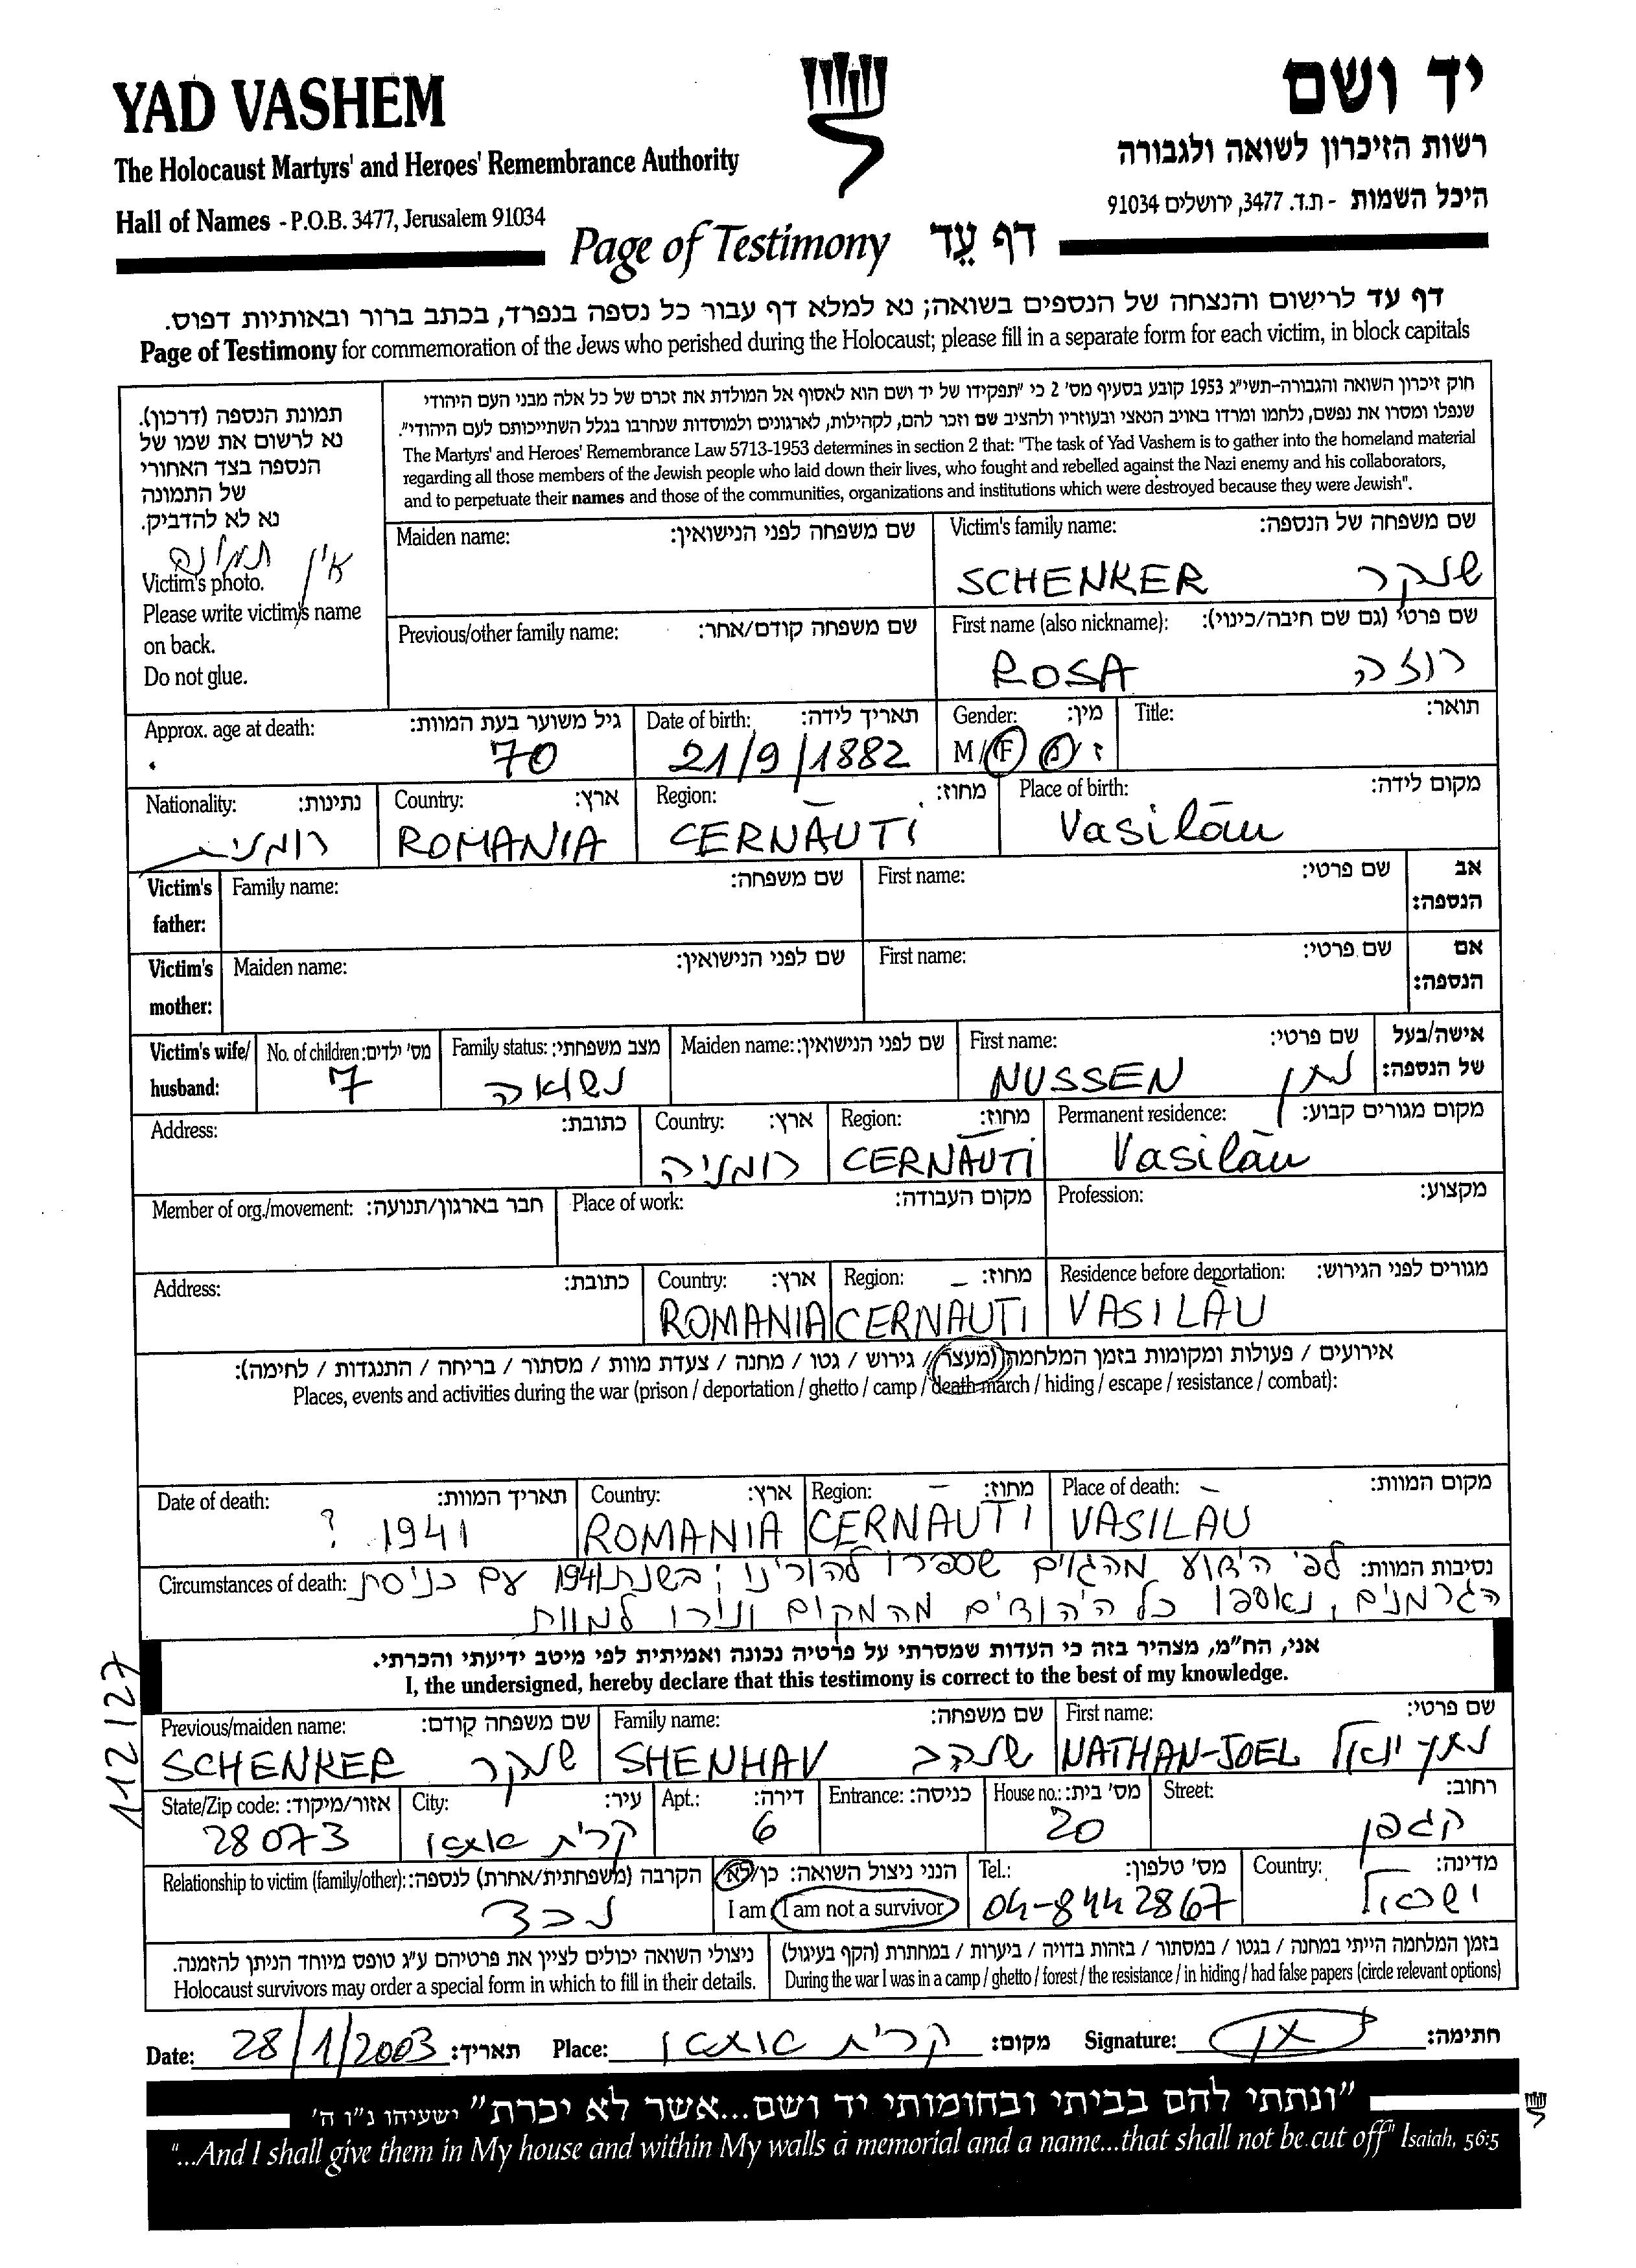 YAD VASHEM
יד ושם
The Holocaust Martyrs' and Heroes' Remembrance Authority
רשות הזיכרון לשואה ולגבורה
Hall of Names - P.O.B. 3477, Jerusalem 91034
היכל השמות - ת.ד. 3477, ירושלים 91034
Page of Testimony דף עֵד
דף עד לרישום והנצחה של הנספים בשואה; נא למלא דף עבור כל נספה בנפרד, בכתב ברור ובאותיות דפוס.
Page of Testimony for commemoration of the Jews who perished during the Holocaust; please fill in a separate form for each victim, in block capitals
תמונת הנספה (דרכון).
נא לרשום את שמו של
הנספה בצד האחורי
של התמונה
נא לא להדביק.
אין תמונה
Victim's photo.
Please write victim's name
on back.
Do not glue.
חוק זיכרון השואה והגבורה-תשי"ג 1953 קובע בסעיף מס' 2 כי "תפקידו של יד ושם הוא לאסוף אל המולדת את זכרם של כל אלה מבני העם היהודי
שנפלו ומסרו את נפשם, נלחמו ומרדו באויב הנאצי ובעוזריו ולהציב שם וזכר להם, לקהילות, לארגונים ולמוסדות שנחרבו בגלל השתייכותם לעם היהודי".
The Martyrs' and Heroes' Remembrance Law 5713-1953 determines in section 2 that: "The task of Yad Vashem is to gather into the homeland material
regarding all those members of the Jewish people who laid down their lives, who fought and rebelled against the Nazi enemy and his collaborators,
and to perpetuate their names and those of the communities, organizations and institutions which were destroyed because they were Jewish".
Maiden name: שם משפחה לפני הנישואין:
Victim's family name: שם משפחה של הנספה:
SCHENKER שנקר
Previous/other family name: שם משפחה קודם/אחר:
First name (also nickname): שם פרטי (גם שם חיבה/כינוי):
ROSA רוזה
Approx. age at death: גיל משוער בעת המוות:
70
Date of birth: תאריך לידה:
21/9/1882
Gender: מין:
M/F ז/נ
Title: תואר:
Nationality: נתינות:
רומני
Country: ארץ:
ROMANIA
Region: מחוז:
CERNĀUTI
Place of birth: מקום לידה:
Vasilāu
Victim's father: Family name: שם משפחה: First name: שם פרטי: אב הנספה:
Victim's mother: Maiden name: שם לפני הנישואין: First name: שם פרטי: אם הנספה:
Victim's wife/ husband:
No. of children: מס' ילדים:
7
Family status: מצב משפחתי:
נשואה
Maiden name: שם לפני הנישואין:
First name: שם פרטי:
NUSSEN נתן
אישה/בעל של הנספה:
Address: כתובת:
Country: ארץ:
רומניה
Region: מחוז:
CERNĀUTI
Permanent residence: מקום מגורים קבוע:
Vasilāu
Member of org./movement: חבר בארגון/תנועה:
Place of work: מקום העבודה:
Profession: מקצוע:
Address: כתובת:
Country: ארץ:
ROMANIA
Region: מחוז:
CERNĀUTI
Residence before deportation: מגורים לפני הגירוש:
VASILĀU
אירועים / פעולות ומקומות בזמן המלחמה (מעצר / גירוש / גטו / מחנה / צעדת מוות / מסתור / בריחה / התנגדות / לחימה):
Places, events and activities during the war (prison / deportation / ghetto / camp / death march / hiding / escape / resistance / combat):
Date of death: תאריך המוות:
? 1941
Country: ארץ:
ROMANIA
Region: מחוז:
CERNĀUTI
Place of death: מקום המוות:
VASILĀU
Circumstances of death: נסיבות המוות: לפי הידוע מהגוים שספרו להורינו; בשנת 1941 עם כניסת
הגרמנים, נאספו כל היהודים מהמקום ונורו למוות
אני, הח"מ, מצהיר בזה כי העדות שמסרתי על פרטיה נכונה ואמיתית לפי מיטב ידיעתי והכרתי.
I, the undersigned, hereby declare that this testimony is correct to the best of my knowledge.
112127
Previous/maiden name: שם משפחה קודם:
SCHENKER שנקר
Family name: שם משפחה:
SHENHAV שנהב
First name: שם פרטי:
NATHAN-JOEL נתן יואל
State/Zip code: אזור/מיקוד:
28073
City: עיר:
קרית אתא
Apt.: דירה:
6
Entrance: כניסה:
House no.: מס' בית:
20
Street: רחוב:
הגפן
Relationship to victim (family/other): הקרבה (משפחתית/אחרת) לנספה:
נכד
הנני ניצול השואה: כן/לא
I am / I am not a survivor
Tel.: מס' טלפון:
04-8442867
Country: מדינה:
ישראל
ניצולי השואה יכולים לציין את פרטיהם ע"ג טופס מיוחד הניתן להזמנה.
Holocaust survivors may order a special form in which to fill in their details.
בזמן המלחמה הייתי במחנה / בגטו / במסתור / בזהות בדויה / ביערות / במחתרת (הקף בעיגול)
During the war I was in a camp / ghetto / forest / the resistance / in hiding / had false papers (circle relevant options)
Date: 28/1/2003 תאריך: Place: קרית אתא מקום: Signature: חתימה:
"ונתתי להם בביתי ובחומותי יד ושם...אשר לא יכרת" ישעיהו נ"ו ה'
"...And I shall give them in My house and within My walls a memorial and a name...that shall not be cut off" Isaiah, 56:5